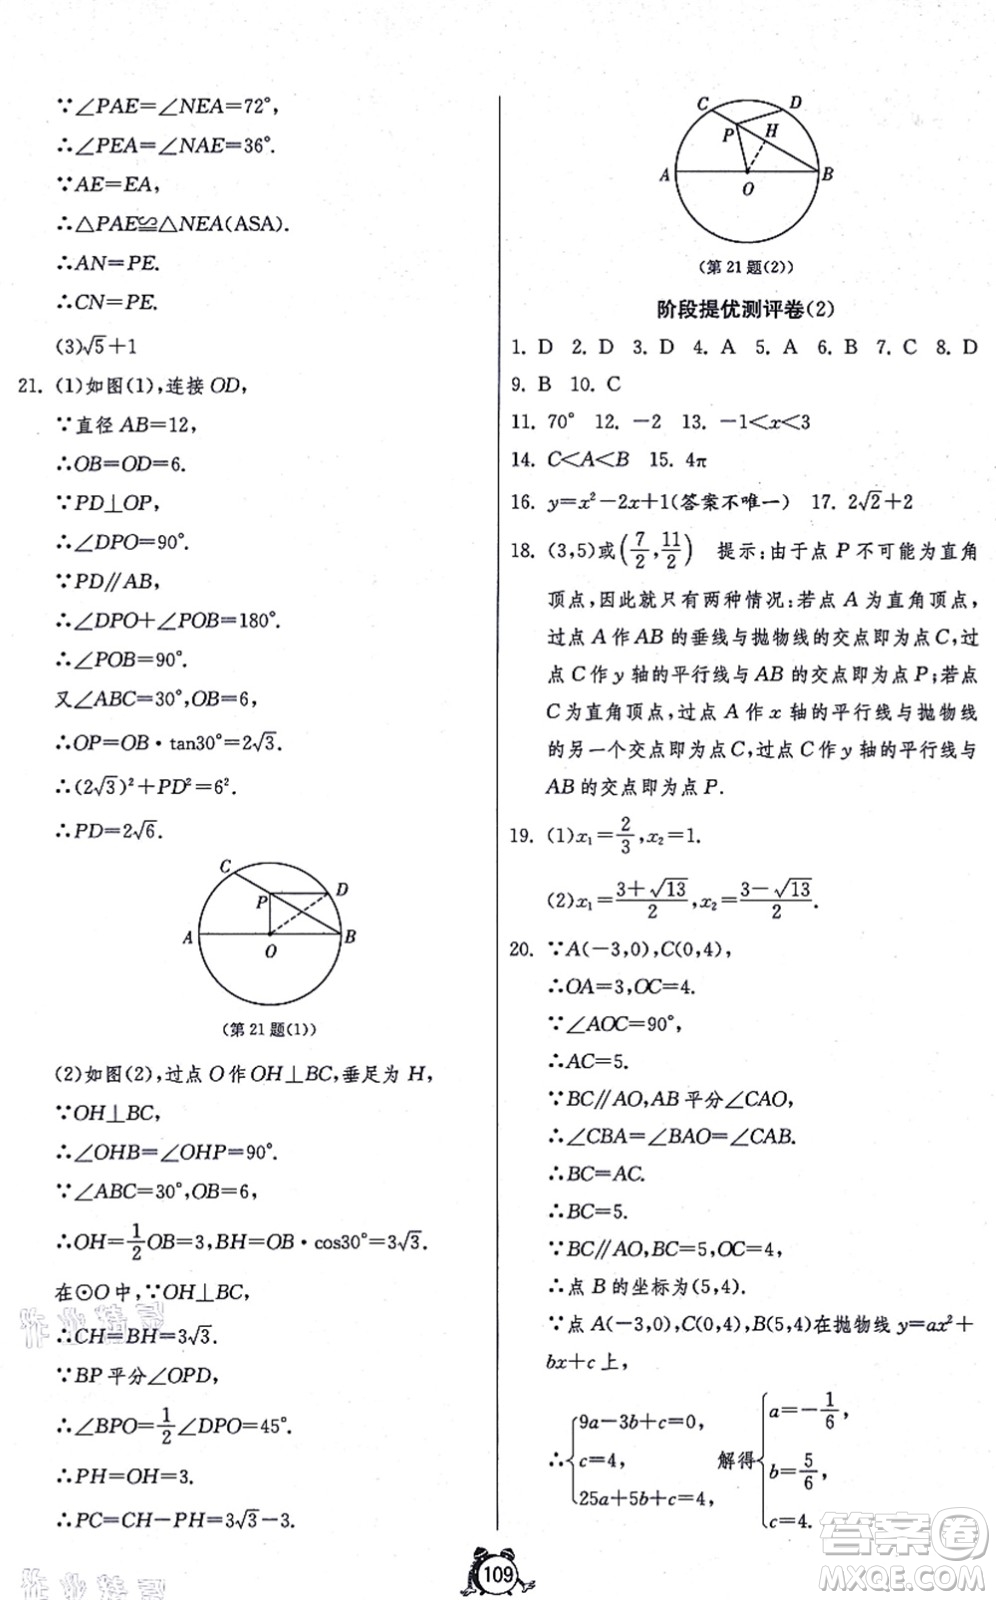 ∵∠PAE=∠NEA=72°,
∴∠PEA=∠NAE=36°.
∵AE=EA,
∴△PAE≌△NEA(ASA).
∴AN=PE.
∴CN=PE.
(3)√5+1
21. (1)如图(1),连接 OD,
∵直径 AB=12,
∴OB=OD=6.
∵PD⊥OP,
∴∠DPO=90°.
∵PD∥AB,
∴∠DPO+∠POB=180°.
∴∠POB=90°.
又∠ABC=30°,OB=6,
∴OP=OB·tan30°=2√3.
∴(2√3)²+PD²=6².
∴PD=2√6.
C
P
D
A
O
B
(第 21 题(1))
(2)如图(2),过点 O 作 OH⊥BC,垂足为 H,
∵OH⊥BC,
∴∠OHB=∠OHP=90°.
∵∠ABC=30°,OB=6,
∴OH=1/2OB=3,BH=OB·cos30°=3√3.
在⊙O 中,∵OH⊥BC,
∴CH=BH=3√3.
∵BP 平分∠OPD,
∴∠BPO=1/2∠DPO=45°.
∴PH=OH=3.
∴PC=CH-PH=3√3-3.
C
D
P
H
A
O
B
(第 21 题(2))
阶段提优测评卷(2)
1. D 2. D 3. D 4. A 5. A 6. B 7. C 8. D
9. B 10. C
11. 70° 12. -2 13. -1<x<3
14. C<A<B 15. 4π
16. y=x²-2x+1(答案不唯一) 17. 2√2+2
18. (3,5)或(7/2,11/2) 提示:由于点 P 不可能为直角
顶点,因此就只有两种情况:若点 A 为直角顶点,
过点 A 作 AB 的垂线与抛物线的交点即为点 C,过
点 C 作 y 轴的平行线与 AB 的交点即为点 P;若点
C 为直角顶点,过点 A 作 x 轴的平行线与抛物线
的另一个交点即为点 C,过点 C 作 y 轴的平行线与
AB 的交点即为点 P.
19. (1)x₁=2/3,x₂=1.
(2)x₁=(3+√13)/2,x₂=(3-√13)/2.
20. ∵A(-3,0),C(0,4),
∴OA=3,OC=4.
∵∠AOC=90°,
∴AC=5.
∵BC∥AO,AB 平分∠CAO,
∴∠CBA=∠BAO=∠CAB.
∴BC=AC.
∴BC=5.
∵BC∥AO,BC=5,OC=4,
∴点 B 的坐标为(5,4).
∵点 A(-3,0),C(0,4),B(5,4)在抛物线 y=ax²+
bx+c 上,
∴{9a-3b+c=0, c=4, 25a+5b+c=4, 解得{a=-1/6, b=5/6, c=4.
109
作业精灵
作业精灵
答案圈
MXQE.COM